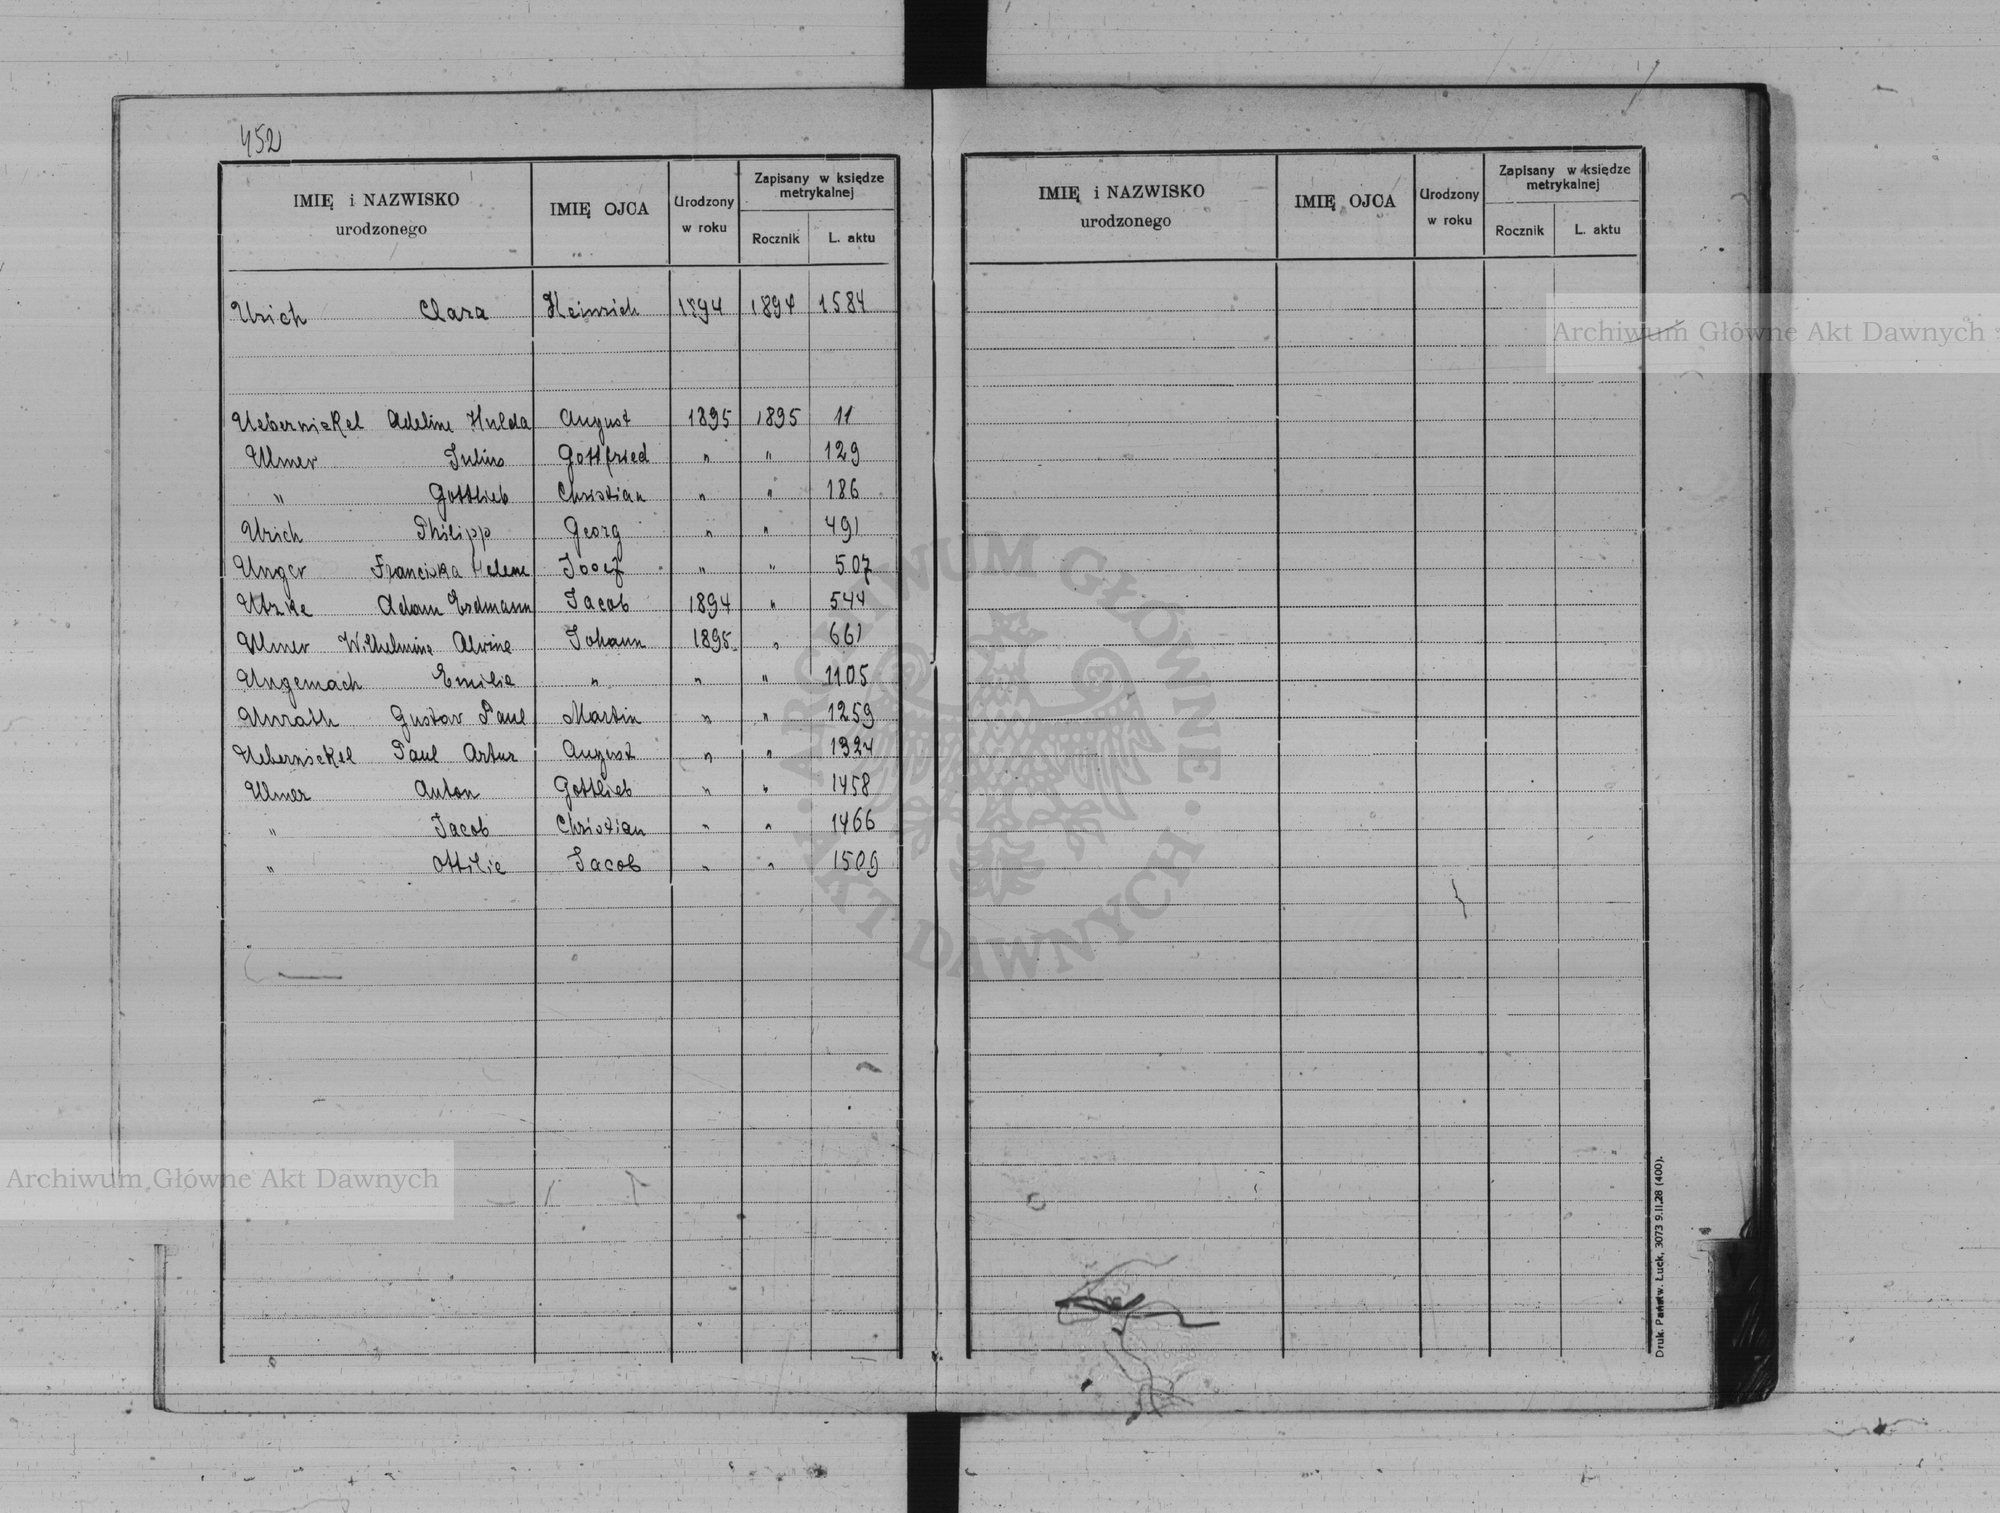 452
IMIĘ i NAZWISKO urodzonego IMIĘ OJCA Urodzony w roku Zapisany w księdze metrykalnej Rocznik L. aktu
Urich Clara Heinrich 1894 1894 1584
Uebernickel Adeline Hulda August 1895 1895 11
Ulmer Julius Gottfried " " 129
" Gottlieb Christian " " 186
Urich Philipp Georg " " 491
Unger Franciska Helene Josef " " 507
Utzke Adam Erdmann Jacob 1894 " 544
Ulmer Wilhelmine Alwine Johann 1895 " 661
Ungemach Emilie " " " 1105
Unrath Gustav Paul Martin " " 1259
Uebernickel Paul Artur August " " 1324
Ulmer Anton Gottlieb " " 1458
" Jacob Christian " " 1466
" Ottilie Jacob " " 1509
IMIĘ i NAZWISKO urodzonego IMIĘ OJCA Urodzony w roku Zapisany w księdze metrykalnej Rocznik L. aktu
Druk. Państw. Łuck, 3073 9.II.28 (400).
Archiwum Główne Akt Dawnych
Archiwum Główne Akt Dawnych
ARCHIWUM GŁÓWNE · AKT DAWNYCH ·